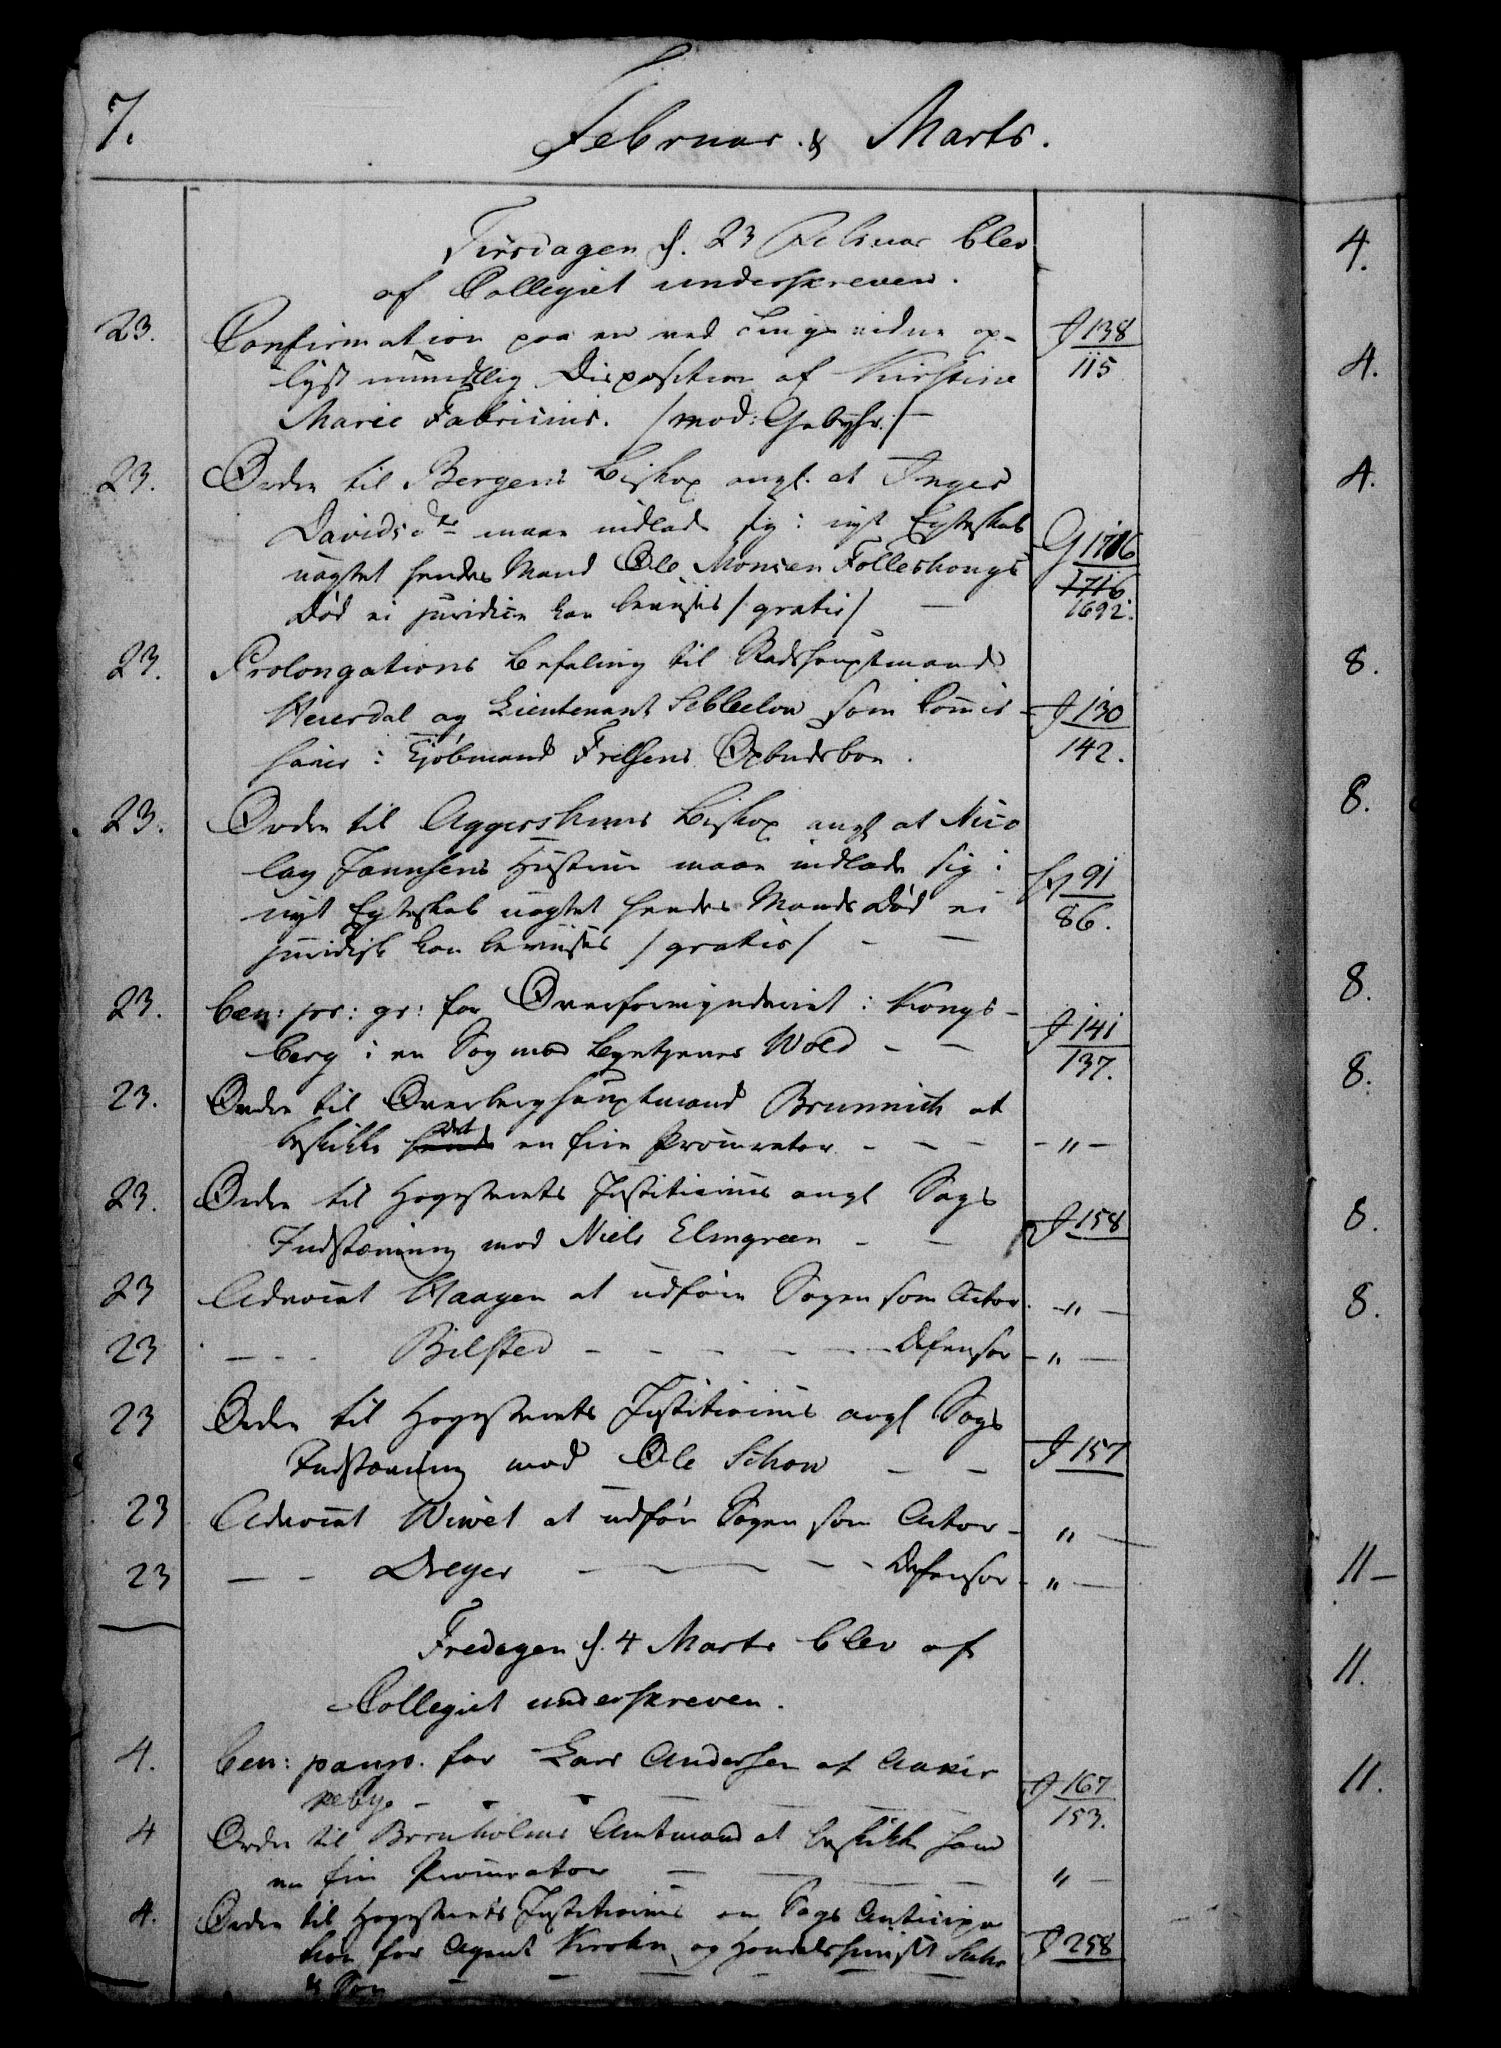 7.
Februar & Marts.
Tirsdagen d. 23 Februar blev
af Collegiet underskreven.
23. Confirmation paa en ved Tings vidne op-
lyst mundtlig Disposition af Kirstine J 138/115
Marie Fabricius. /mod: Gebyhr./ —
23. Ordre til Bergens Biskop angl. at Inger
Davidsdr maae indlade sig i nyt Egteskab
uagtet hendes Mand Ole Monsen Folleshougs G 1716/1716
Død ei juridice kan bevises /gratis/ — 1692.
23. Prolongations Befaling til Raadshauptmand
Heierdal og Lieutenant som Comis- J 130
sairer i Kjøbmand Opbudsboe. 142.
23. Ordre til Aggershuus Biskop angl at Nico
lay Jannsens Hustrue maae indlade sig i 91
nyt Egteskab uagtet hendes Mands Død ei 86.
juridisk kan bevises /gratis/ — —
23. ben: pr: gr: for Overformynderiet i Kongs- J 141
berg i en Sag mod Byetjener Wold — — 137.
23. Ordre til Overberghauptmand Brunnich at
beskikke det en frie Procurator — — — — " —
23. Ordre til Høyesterets Justitiarius angl Sags
Indstævning mod Niels Elmgreen — — J 158
23 Advocat Haagen at udføre Sagen som Actor. — " —
23 — — — Bilsted — — — — — Defensor — " —
23 Ordre til Høyesterets Justitiarius angl Sags
Indstævning mod Ole Schow — — J 157
23 Advocat Wivet at udføre Sagen som Actor — " —
23 — — Dreyer — — — — Defensor — " —
Fredagen d. 4 Marts blev af
Collegiet underskreven.
4. ben: paup. for Lars Andersen af Aakir J 167
kebye — — — — — — 153.
4 Ordre til Bornholms Amtmand at beskikke ham
en frie Procurator — — — " —
4. Ordre til Høyesterets Justitiarius om Sags Anticipa
tion for Agent og Handelshuuset J 258
& Søn — — — — — —
4.
4.
4.
8.
8.
8.
8.
8.
8.
11 —
11.
11.